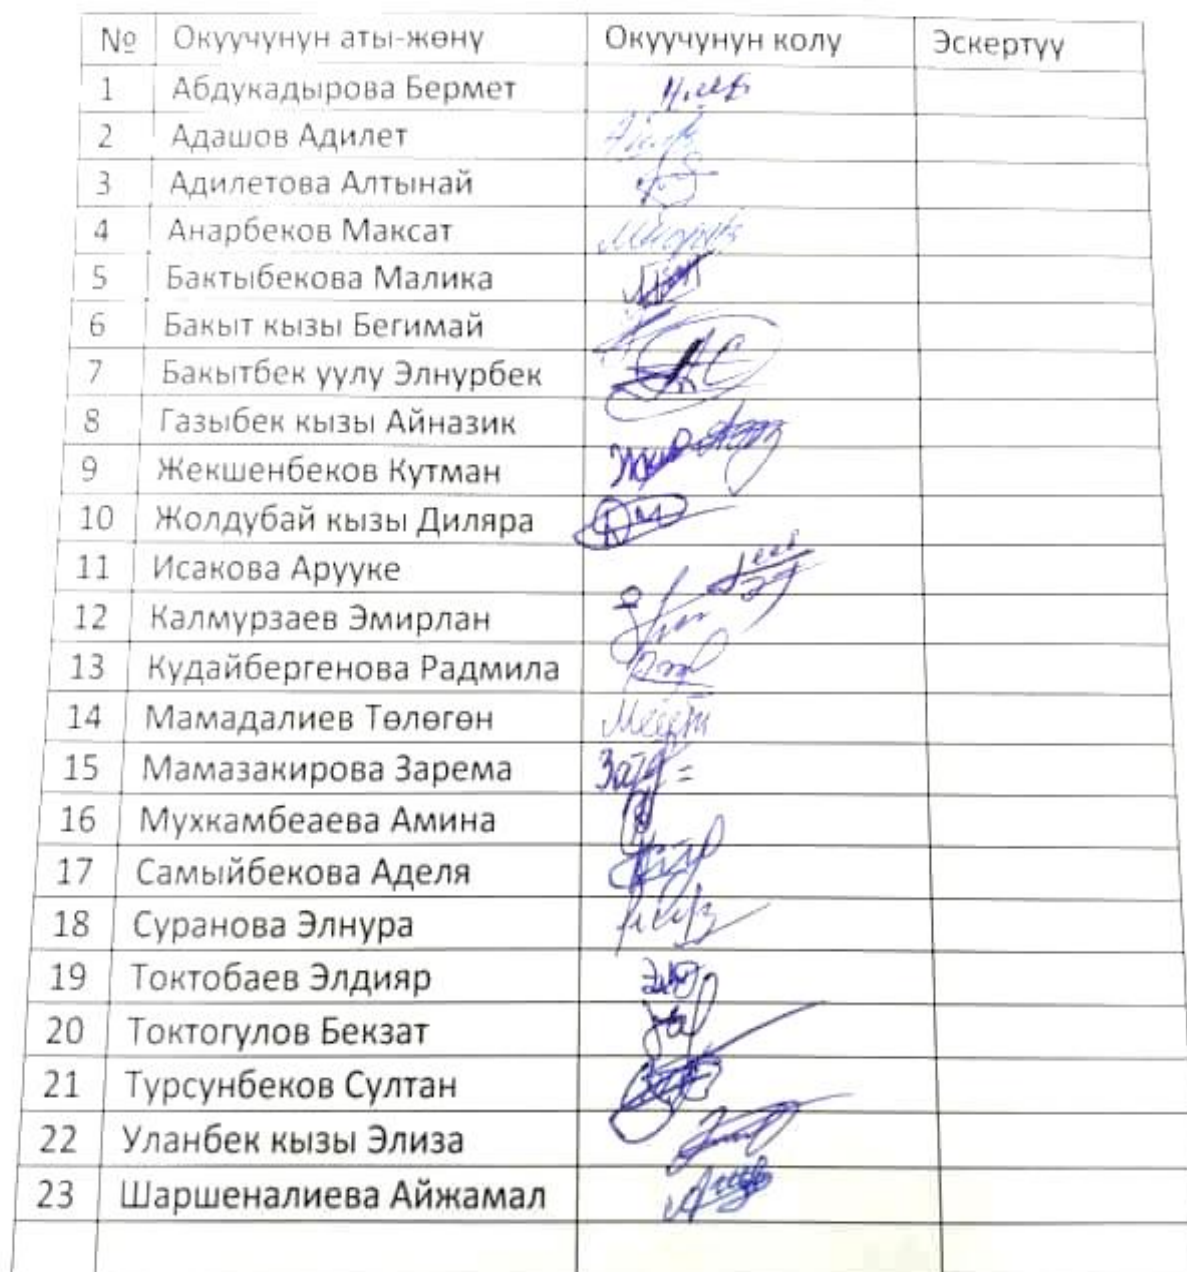 № Окуучунун аты-жөнү Окуучунун колу Эскертүү
1 Абдукадырова Бермет
2 Адашов Адилет
3 Адилетова Алтынай
4 Анарбеков Максат
5 Бактыбекова Малика
6 Бакыт кызы Бегимай
7 Бакытбек уулу Элнурбек
8 Газыбек кызы Айназик
9 Жекшенбеков Кутман
10 Жолдубай кызы Диляра
11 Исакова Арууке
12 Калмурзаев Эмирлан
13 Кудайбергенова Радмила
14 Мамадалиев Төлөгөн
15 Мамазакирова Зарема
16 Мухкамбеаева Амина
17 Самыйбекова Аделя
18 Суранова Элнура
19 Токтобаев Элдияр
20 Токтогулов Бекзат
21 Турсунбеков Султан
22 Уланбек кызы Элиза
23 Шаршеналиева Айжамал